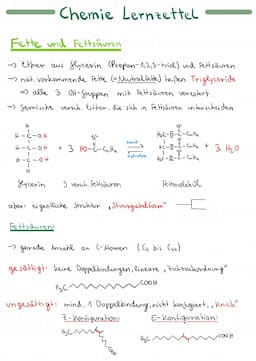 Chemie Lernzettel
Fette und Fettsäuren
→ Ether aus Glycerin (Propan-1,2,3-triol) und Fettsäuren
→ nat. vorkommende Fette (= Neutralfette) heißen Triglyceride
→ alle 3 OH-Gruppen mit Fettsäuren verestert
→ Gemische versch. Ester, die sich in Fettsäuren unterscheiden
+ 3 HO-C-CₙHₘ + 3 H₂O
Glycerin 3 versch. Fettsäuren
aber: eigentliche Struktur „Stimmgabelform"
Fettsäuren:
→ gerade Anzahl an C-Atomen
gesättigt: keine Doppelbindungen, lineare „Zickzackordnung"
H₃C COOH
ungesättigt: mind. 1 Doppelbindung, nicht konjugiert, „Knick"
Z-Konfiguration: E-Konfiguration:
H₃C COOH H₃C COOH